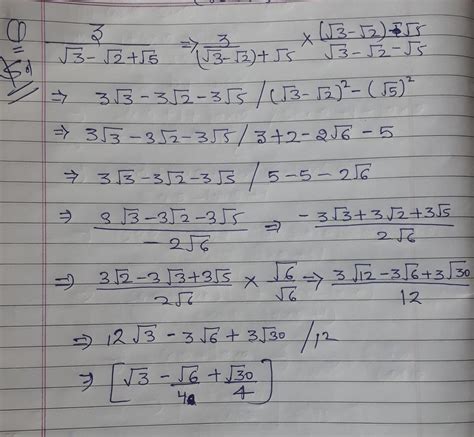 ① 3/(√3-√2+√5) ⇒ 3/((√3-√2)+√5) × ((√3-√2)-√5)/(√3-√2-√5)
⇒ 3√3-3√2-3√5 / (√3-√2)² - (√5)²
⇒ 3√3-3√2-3√5 / 3+2-2√6-5
⇒ 3√3-3√2-3√5 / 5-5-2√6
⇒ (3√3-3√2-3√5)/(-2√6) ⇒ (-3√3+3√2+3√5)/(2√6)
⇒ (3√2-3√3+3√5)/(2√6) × √6/√6 ⇒ (3√12-3√6+3√30)/12
⇒ 12√3-3√6+3√30 /12
⇒ [√3 - √6/4 + √30/4]